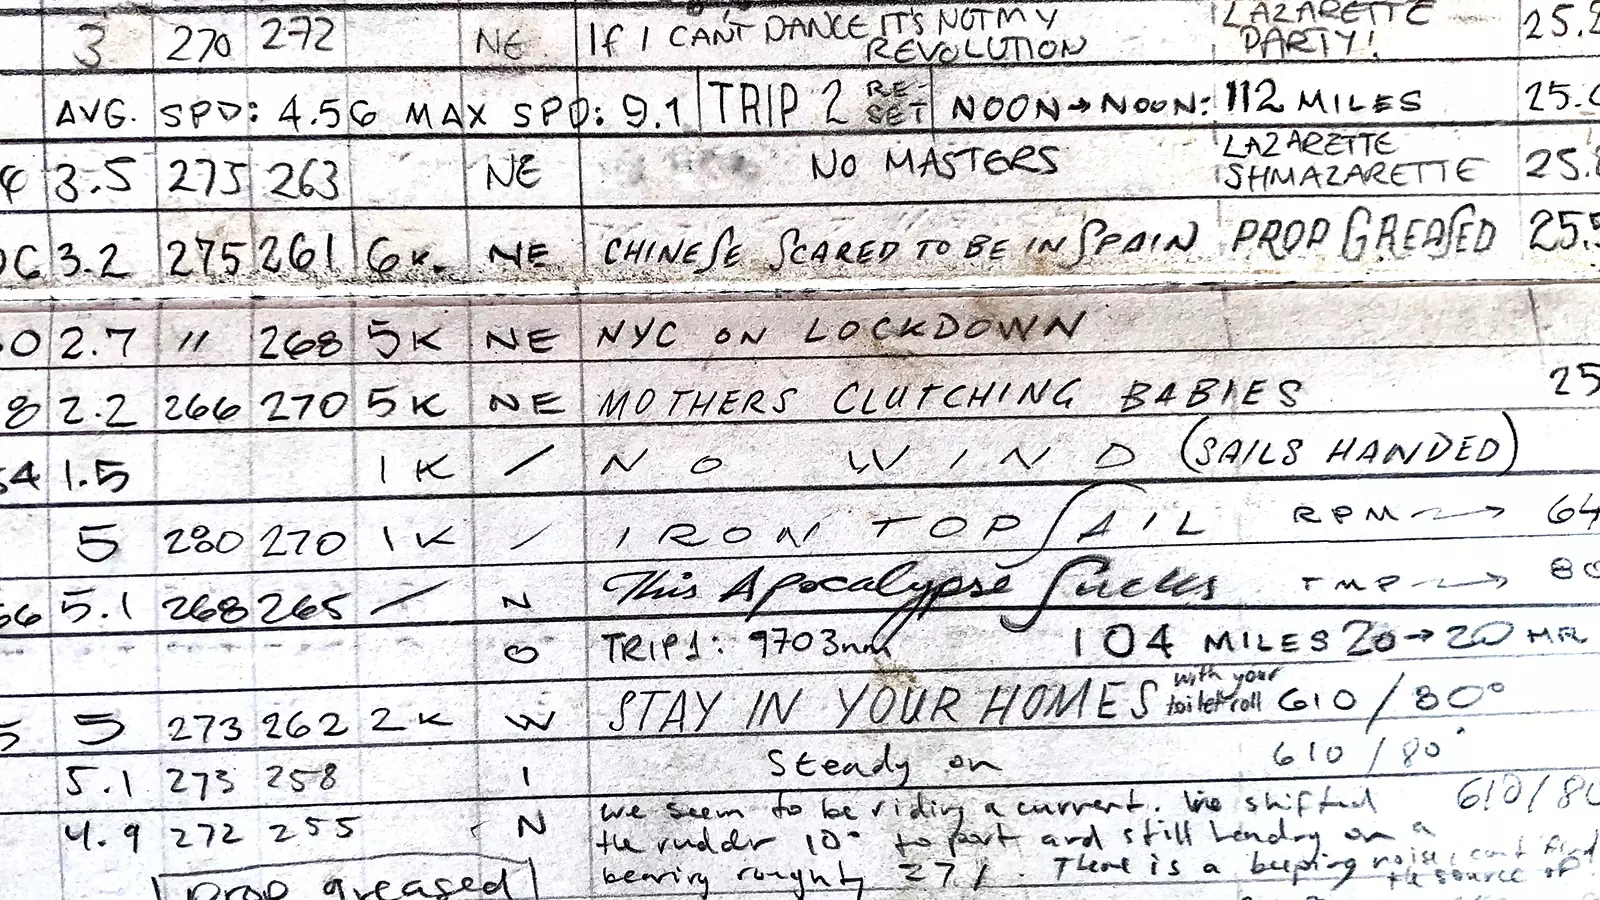 3 270 272 NE If I CAN'T DANCE IT'S NOT MY REVOLUTION LAZARETTE PARTY! 25.2
AVG. SPD: 4.56 MAX SPD: 9.1 TRIP 2 RE-SET NOON→NOON: 112 MILES 25.
4 3.5 275 263 NE NO MASTERS LAZARETTE SHMAZARETTE 25.8
06 3.2 275 261 6K. NE CHINESE SCARED TO BE IN SPAIN PROP GREASED 25.5
0 2.7 " 268 5K NE NYC ON LOCKDOWN
8 2.2 266 270 5K NE MOTHERS CLUTCHING BABIES 25
54 1.5 1K / NO WIND (SAILS HANDED)
5 280 270 1K / IRON TOPSAIL RPM → 64
56 5.1 268 265 / N This Apocalypse Sucks TMP → 80
O TRIP1: 9703nm 104 MILES 20→20 HR
5 5 273 262 2K W STAY IN YOUR HOMES with your toilet roll 610 / 80°
5.1 273 258 I Steady on 610 / 80°
4.9 272 255 N We seem to be riding a current. We shifted 610/80
the ruddr 10° to port and still heading on a
bearing roughly 271. There is a beeping noise, cant find the source of
Prop greased